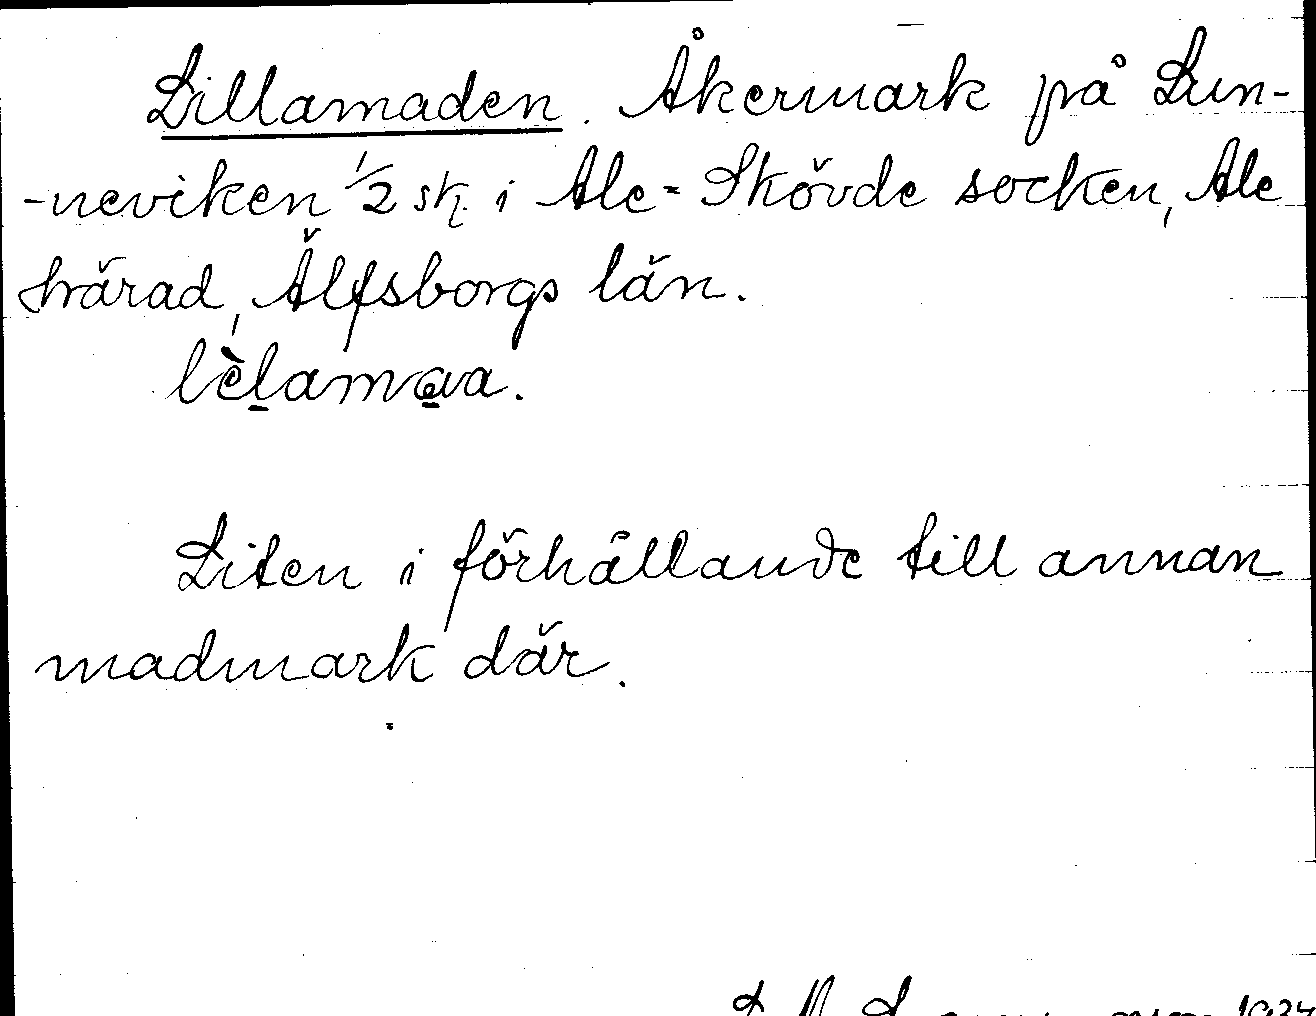 Lillamaden. Åkermark på Lun-
-neviken 1/2 sk. i Ale-Skövde socken, Ale
härad, Älfsborgs län.
lèlamava.
Liten i förhållande till annan
madmark där.